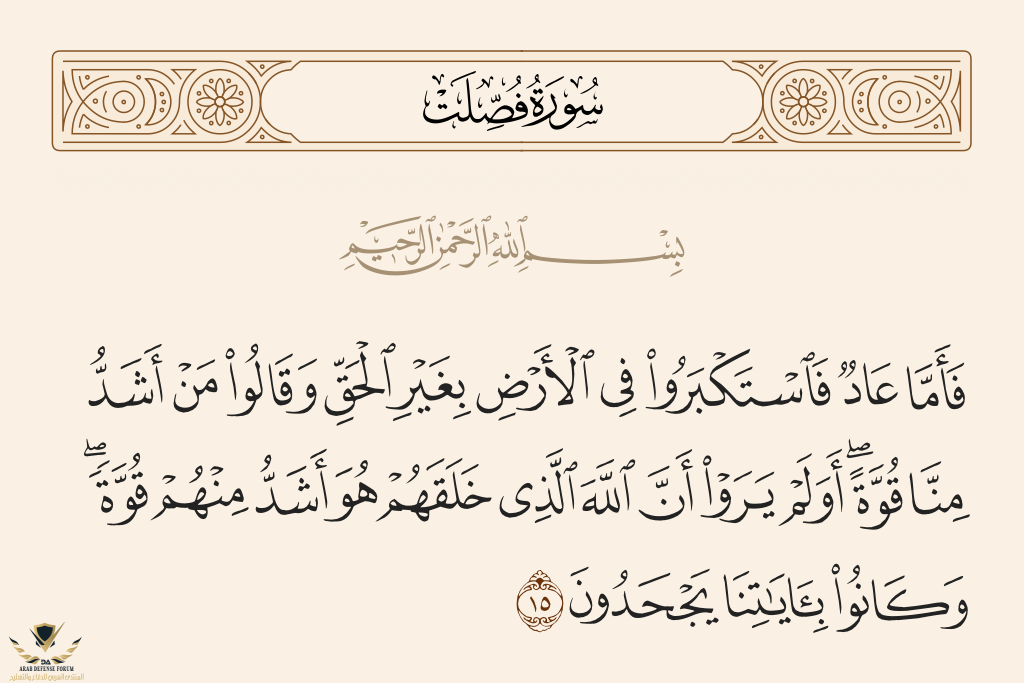 سُورَةُ فُصِّلَتْ
بِسْمِ ٱللَّهِ ٱلرَّحْمَٰنِ ٱلرَّحِيمِ
فَأَمَّا عَادٌ فَٱسْتَكْبَرُوا۟ فِى ٱلْأَرْضِ بِغَيْرِ ٱلْحَقِّ وَقَالُوا۟ مَنْ أَشَدُّ
مِنَّا قُوَّةً ۖ أَوَلَمْ يَرَوْا۟ أَنَّ ٱللَّهَ ٱلَّذِى خَلَقَهُمْ هُوَ أَشَدُّ مِنْهُمْ قُوَّةً ۖ
وَكَانُوا۟ بِـَٔايَـٰتِنَا يَجْحَدُونَ ١٥
DA
ARAB DEFENSE FORUM
المنتدى العربي للدفاع والتسليح